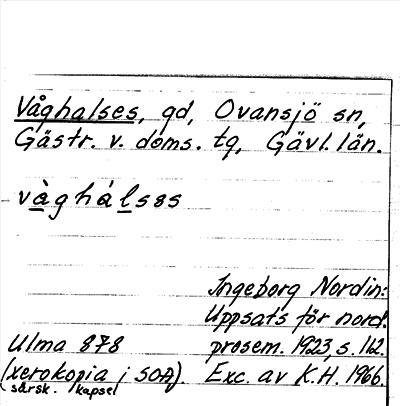 Våghalses, gd, Ovansjö sn,
Gästr. v. doms. tg, Gävl. län.
vàghálsɜs
Ingeborg Nordin:
Uppsats för nord.
Ulma 878 prosem. 1923, s. 112.
(xerokopia i SOA). Exc. av K.H. 1966.
särsk. kapsel